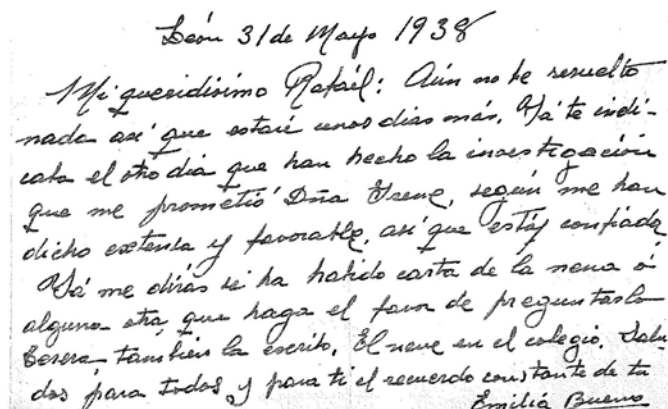 León 31 de Mayo 1938
Mi queridísimo Rafaél: Aún no he resuelto
nada así que estaré unos dias más. Yá te indi-
caba el otro dia que han hecho la investigación
que me prometió Dña Irene, según me han
dicho extensa y favorable, así que estóy confiada
Yá me dirás si ha habido carta de la nena ó
alguna otra, que haga el favor de preguntarlo
Teresa también la escribo. El nene en el colegio. Salu-
dos para todos y para ti el recuerdo constante de tu
Emilia Bueno